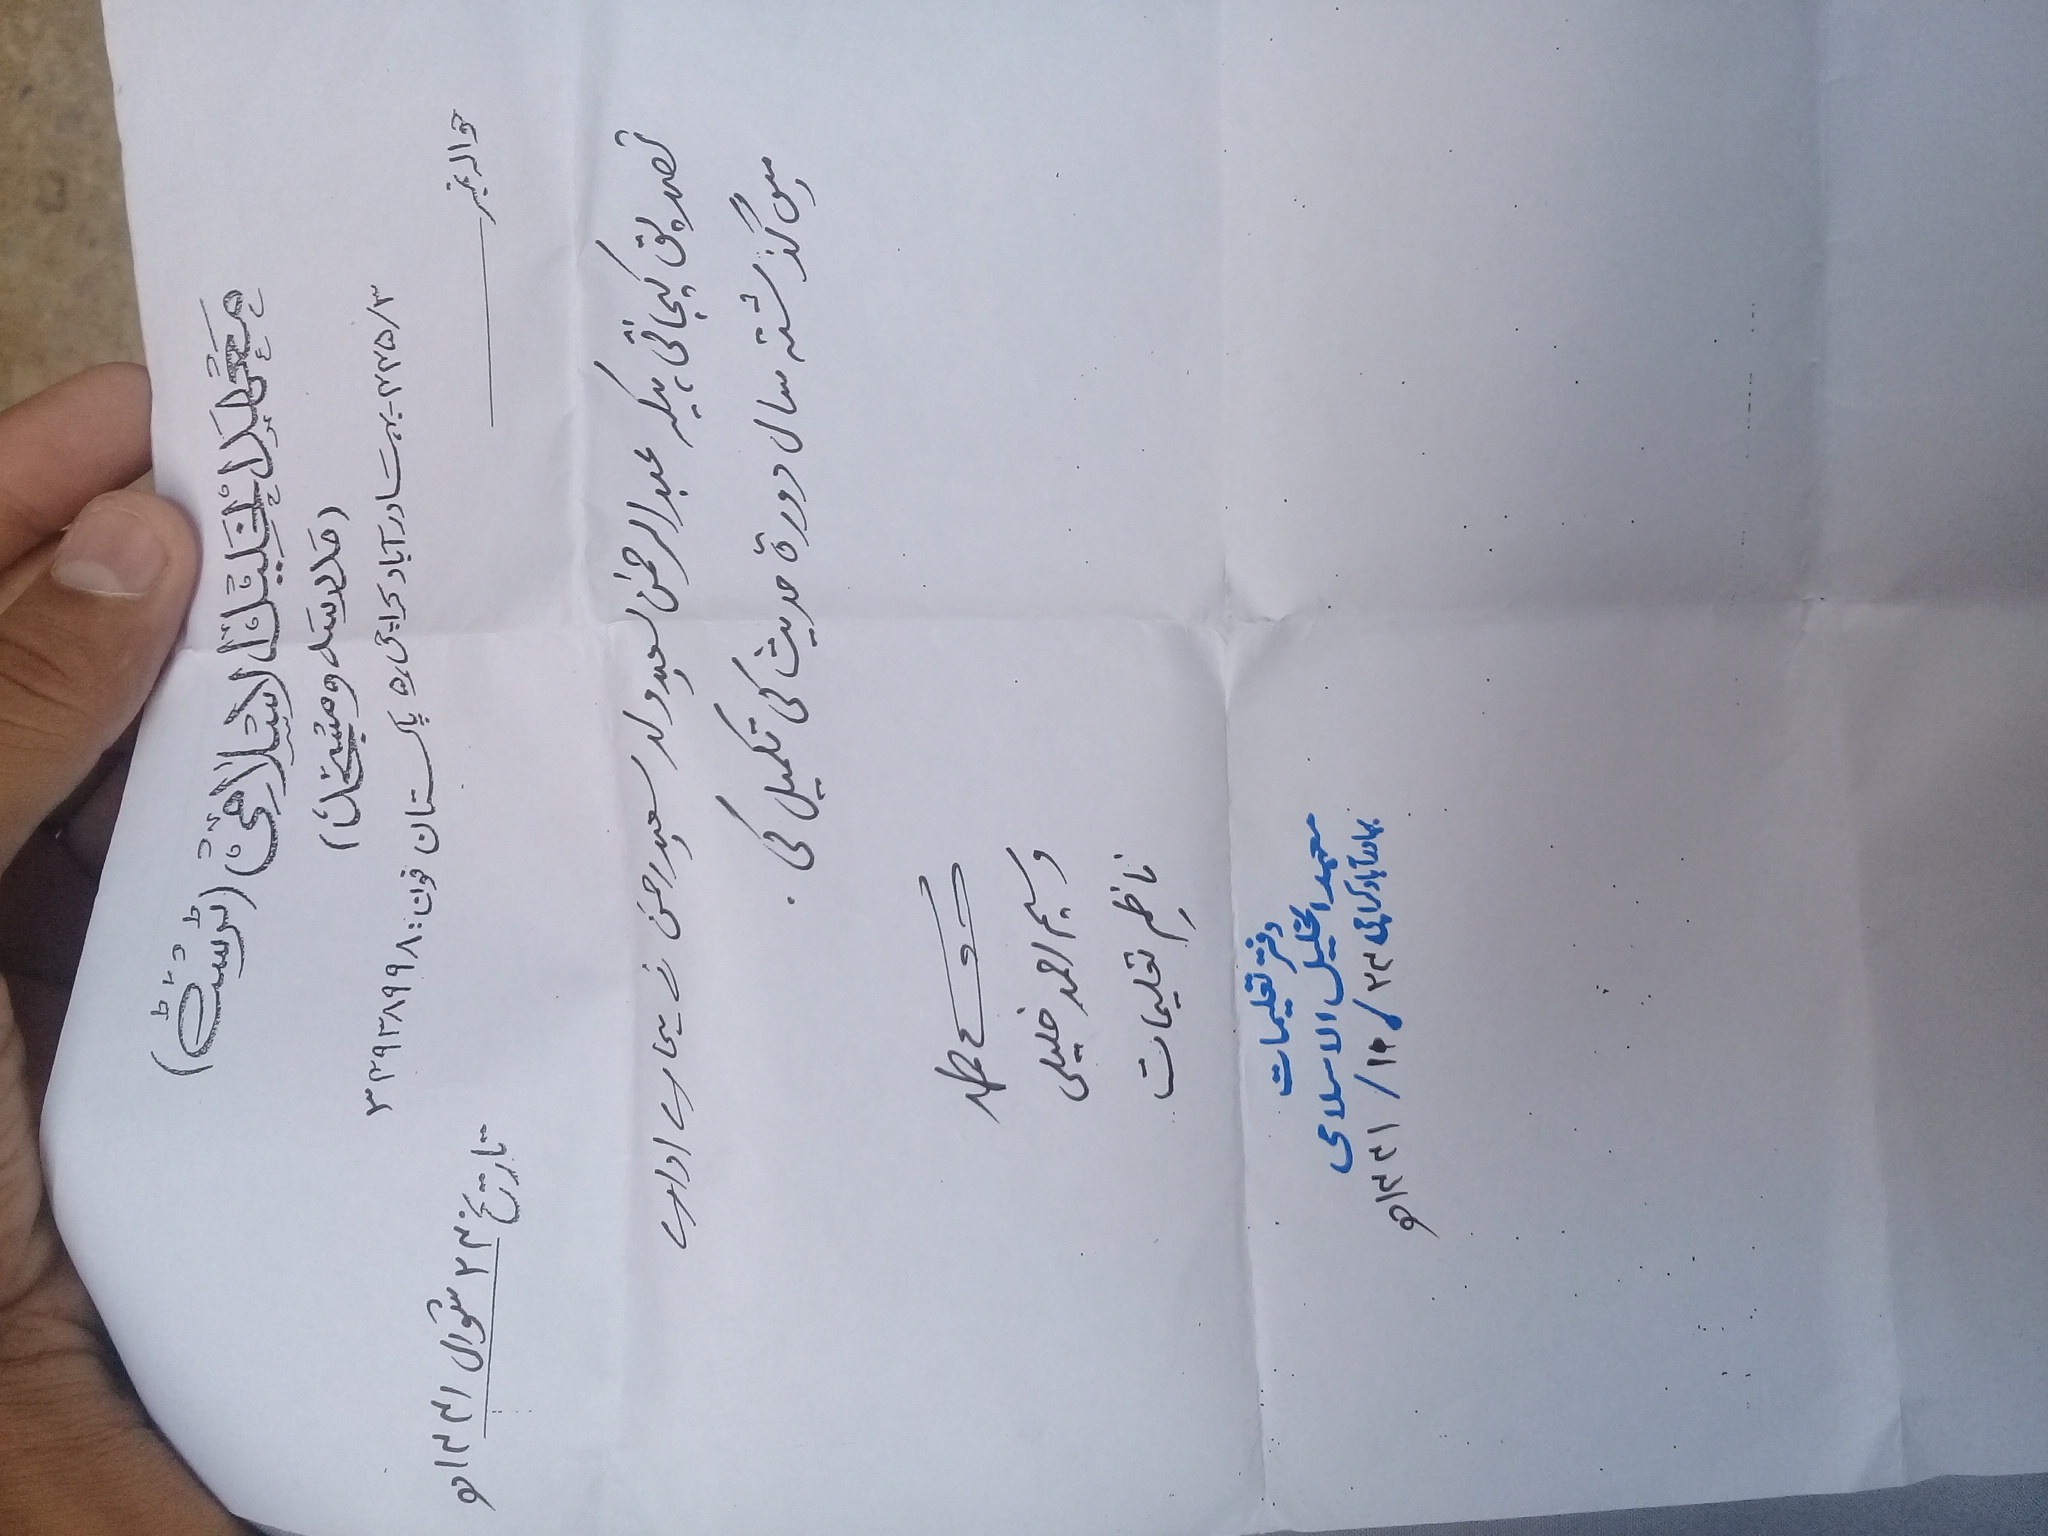 معہد الخلیل الاسلامی (ٹرسٹ)
(مدرسہ و مسجد)
۳/۴۴۵-بہادرآباد کراچی ۵ پاکستان فون: ۳۴۹۳۸۹۹۸
حوالہ نمبر
تاریخ ۲۴ شوال ۱۴۴۱ھ
تصدیق کیجاتی ہیکہ عبدالرحمٰن سعید ولد سعید احمد نے ہمارے ادارے
میں گذشتہ سال دورۃ حدیث کی تکمیل کی۔
وسیم احمد خلیلی
ناظم تعلیمات
دفتر تعلیمات
معہد الخلیل الاسلامی
بہادرآباد کراچی
۲۴/۱۰/۱۴۴۱ھ